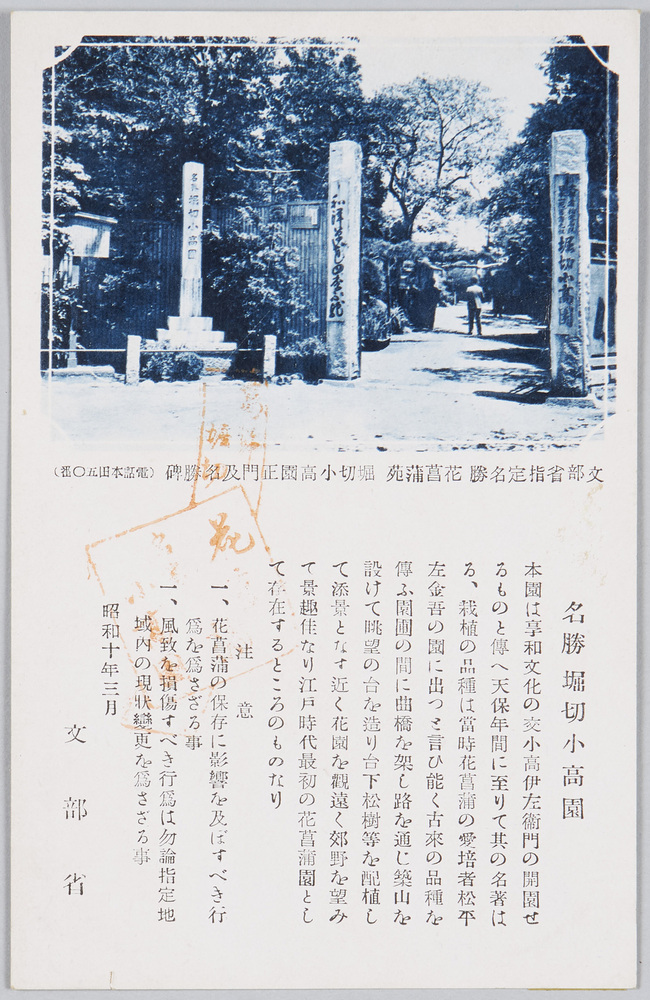 名勝堀切小高園
堀切小高園
文部省指定名勝 花菖蒲苑 堀切小高園正門及名勝碑 (電話本田五〇番)
名勝堀切小高園
本園は享和文化の交小高伊左衞門の開園せ
るものと傳へ天保年間に至りて其の名著は
る、栽植の品種は當時花菖蒲の愛培者松平
左金吾の園に出つと言ひ能く古來の品種を
傳ふ園圃の間に曲橋を架し路を通じ築山を
設けて眺望の台を造り台下松樹等を配植し
て添景となす近く花園を觀遠く郊野を望み
て景趣佳なり江戸時代最初の花菖蒲園とし
て存在するところのものなり
注意
一、花菖蒲の保存に影響を及ぼすべき行
爲を爲さざる事
一、風致を損傷すべき行爲は勿論指定地
域內の現狀變更を爲さざる事
昭和十年三月
文部省
堀切
花